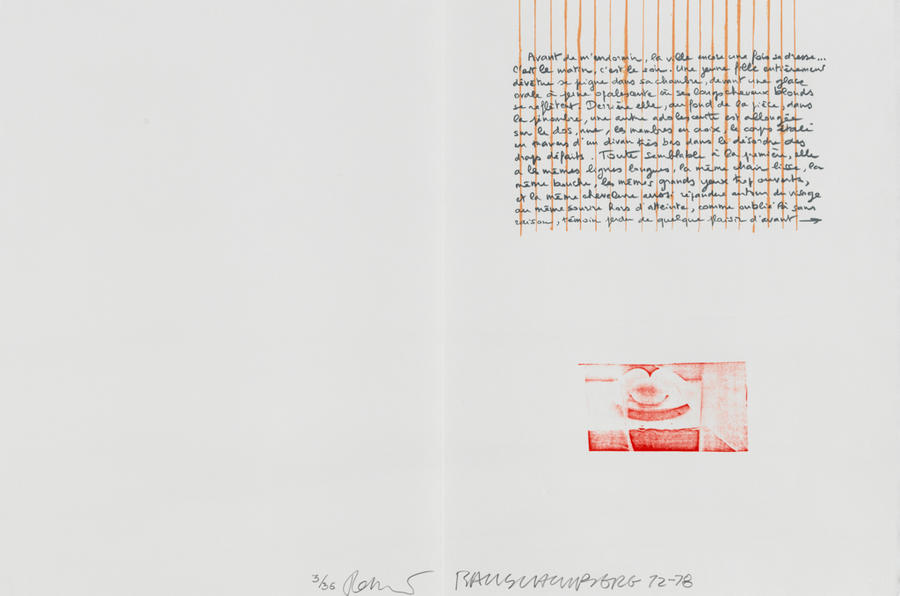 Avant de m'endormir, la ville encore une fois se dresse...
C'est le matin, c'est le soir. Une jeune fille entièrement
dévêtue se peigne dans sa chambre, devant une glace
ovale à peine opalescente où ses longs cheveux blonds
se reflètent. Derrière elle, au fond de la pièce, dans
la pénombre, une autre adolescente est allongée
sur le dos, nue, les membres en croix, le corps étalé
en travers d'un divan très bas dans le désordre des
draps défaits. Toute semblable à la première, elle
a les mêmes lignes longues, la même chair lisse, la
même bouche, les mêmes grands yeux trop ouverts,
et la même chevelure aussi répandue autour du visage
au même sourire hors d'atteinte, comme oublié là sans
raison, témoin perdu de quelque plaisir d'avant →
3/36 RAUSCHENBERG 72-78